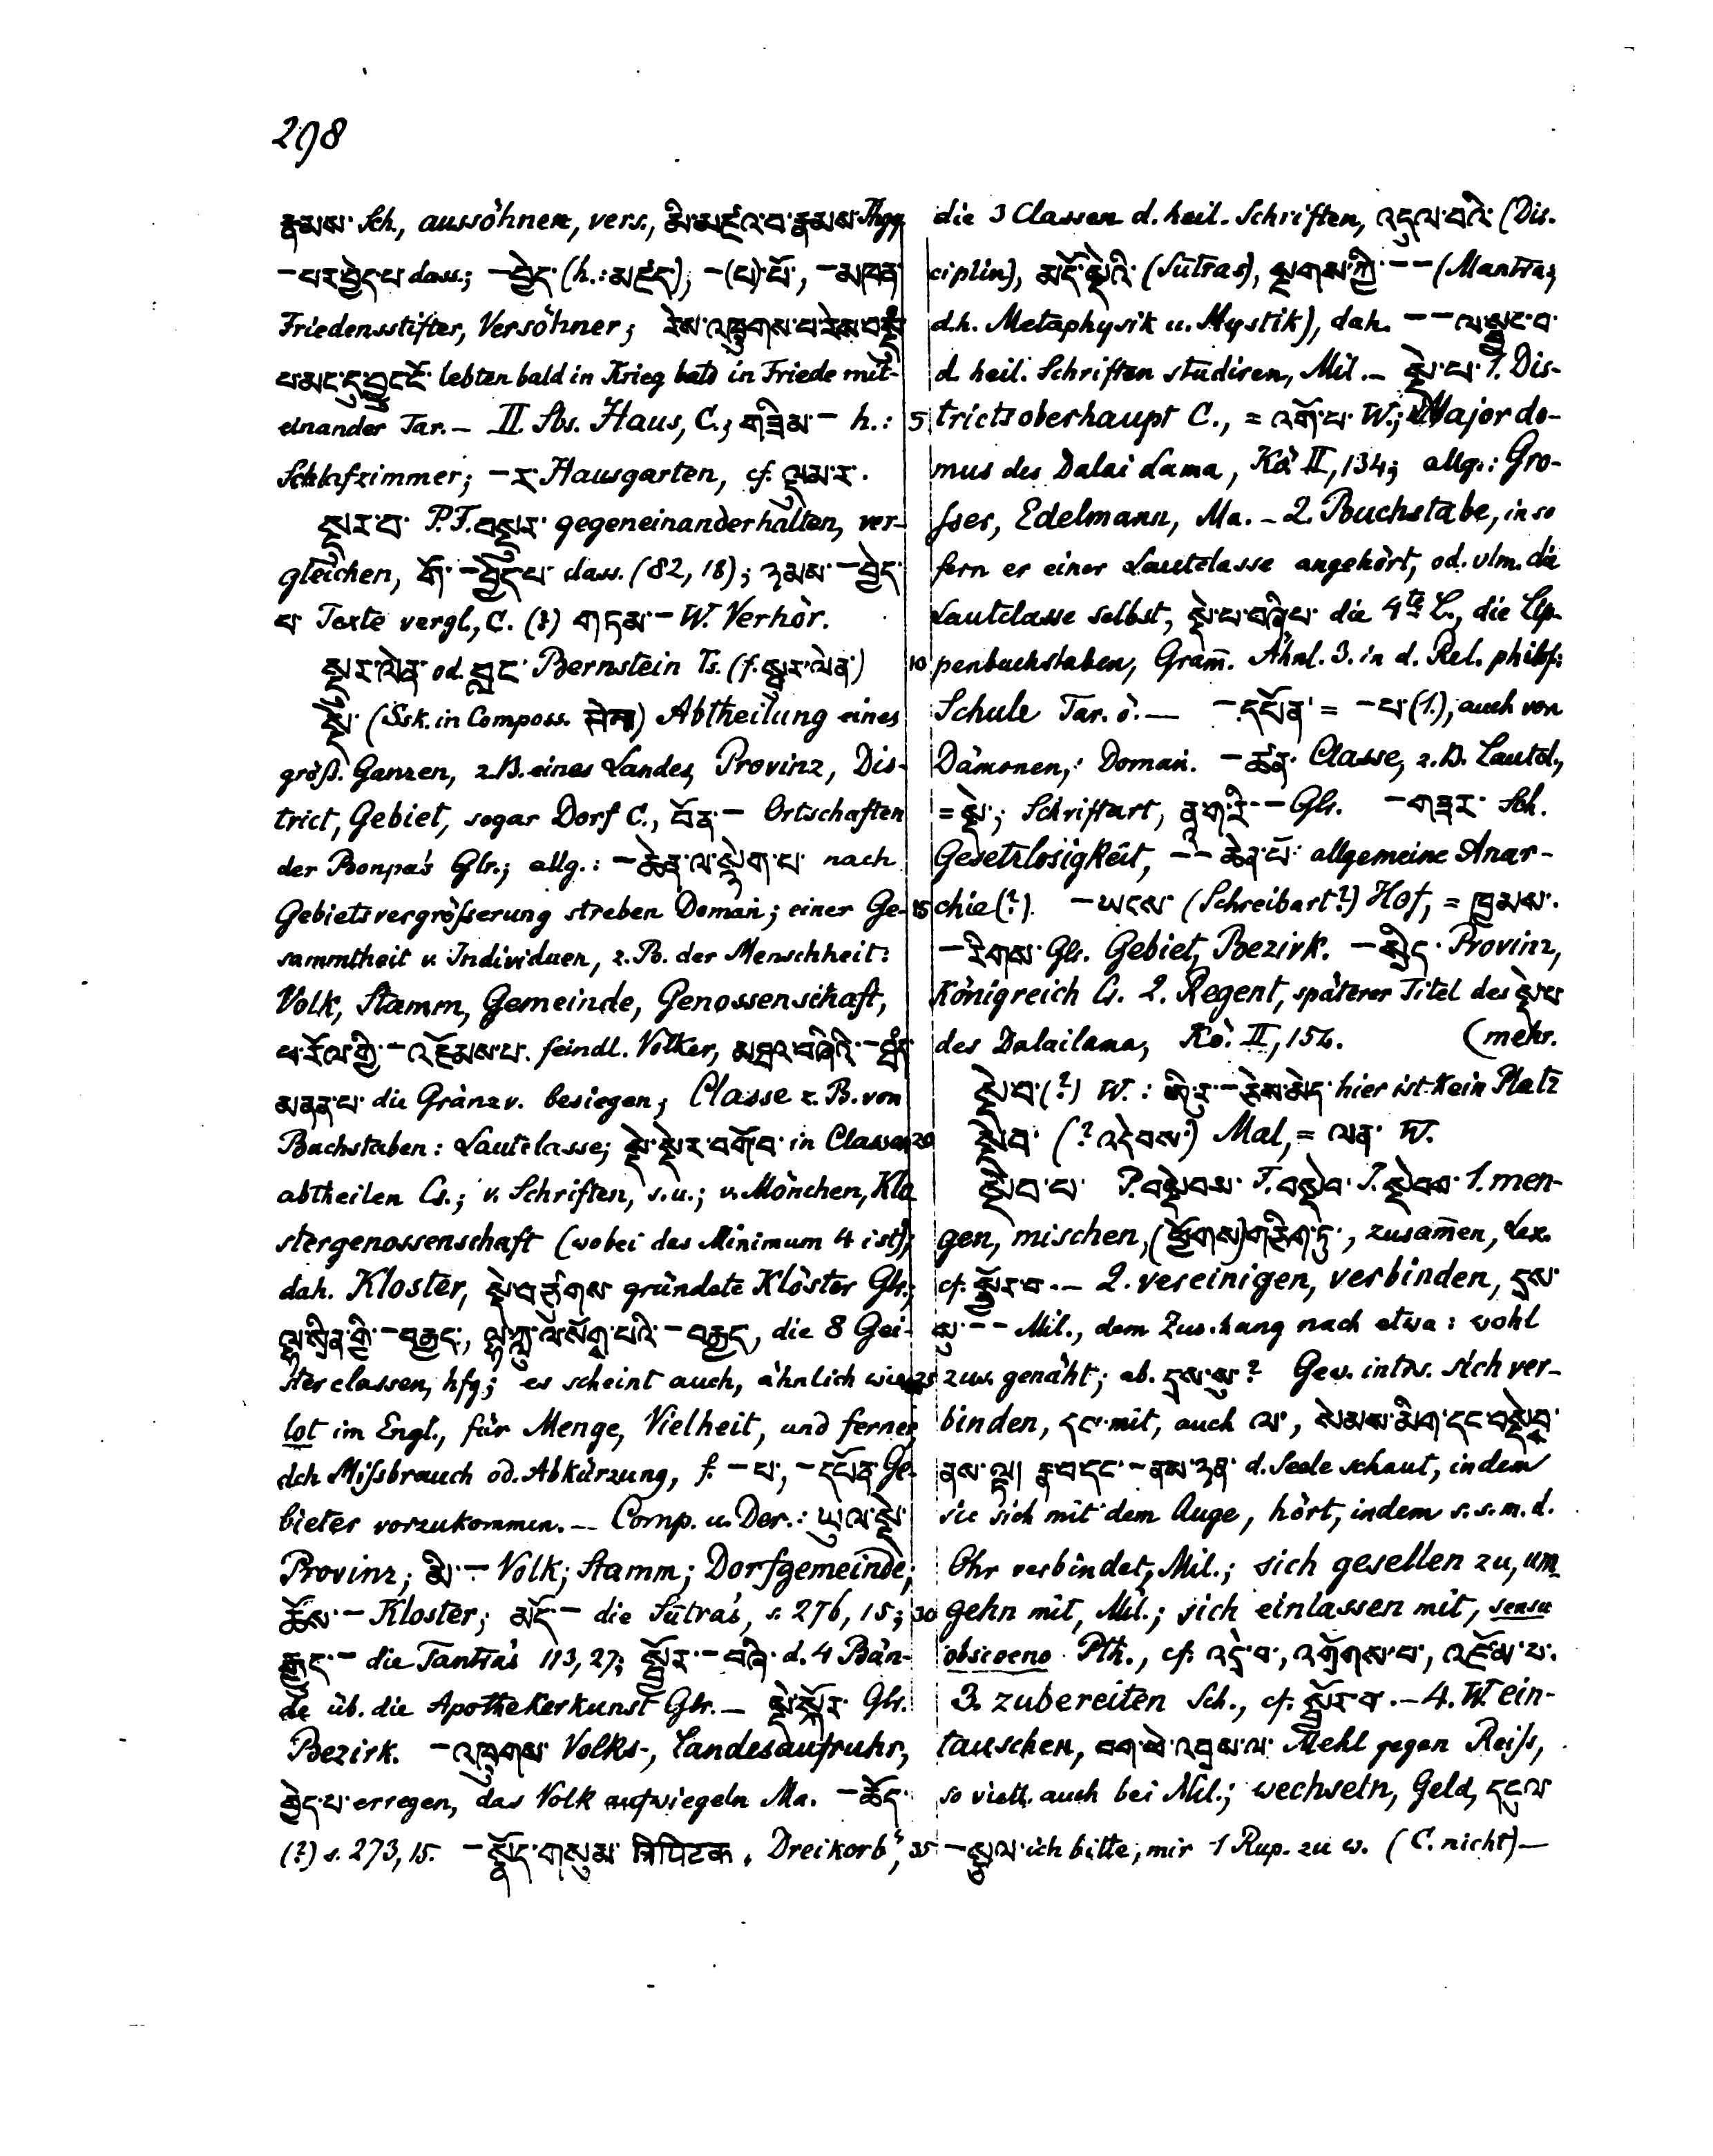 298
རྣམས་ Sch., aussöhnen, vers., མི་མཛའ་བ་རྣམས་ Thgy
–པར་བྱེད་པ dass.; –བྱེད་ (h.: མཛད་), –(པ)་པོ་, –མཁན་
Friedensstifter, Versöhner; རེས་འཁྲུགས་པ་རེས་བསྡུ
པ་མང་དུ་བྱུང་ངོ་ lebten bald in Krieg bald in Friede mit-
einander Tar. – II Sbs. Haus, C.; གཟིམ་– h.:
Schlafzimmer; –ར་ Hausgarten, cf. ལྡུམ་ར་.
སྡུར་བ་ P.F. བསྡུར་ gegeneinanderhalten, ver-
gleichen, གོ་–བྱེད་པ་ dass. (82, 18); ཉམས་–བྱེད་
པ་ Texte vergl., C. (?) གཏམ་– W. Verhör.
སྡུར་ལེན་ od. བྱུང་ Bernstein Ts. (f. སྦུར་ལེན་)
སྡེ་ (Ssk. in Composs. सेन) Abtheilung eines
größ. Ganzen, z.B. eines Landes, Provinz, Dis-
trict, Gebiet, sogar Dorf C., བོན་– Ortschaften
der Bonpa's Glr.; allg.: –ཆེན་ལ་སྙེག་པ་ nach
Gebietsvergrößerung streben Doman; einer Ge-
sammtheit v. Individuen, z.B. der Menschheit:
Volk, Stamm, Gemeinde, Genossenschaft,
ཕ་རོལ་གྱི་–འཇོམས་པ་ feindl. Völker, མཐའ་བཞིའི་–
མནན་པ་ die Gränzv. besiegen; Classe z. B. von
Buchstaben: Lautclasse; སྡེ་སྡེར་བགོ་བ་ in Classen
abtheilen Cs.; v. Schriften, s.u.; v. Mönchen, Klo
stergenossenschaft (wobei das Minimum 4 ist);
dah. Kloster, སྡེ་བཙུགས gründete Klöster Glr.;
ལྷ་སྲིན་གྱི་–བརྒྱད་, ལྷ་ཀླུ་ལ་སོགས་པའི་–བརྒྱད, die 8 Gei-
sterclassen, hfg; es scheint auch, ähnlich wie
lot im Engl., für Menge, Vielheit, und ferner
dch Mißbrauch od. Abkürzung, f. –པ་, –དཔོན་ Ge-
bieter vorzukommen. – Comp. u. Der.: ཡུལ་སྡེ་
Provinz; མི་– Volk; Stamm; Dorfgemeinde;
ཆོས་– Kloster; མདོ་– die Sūtra's, s. 276, 15;
རྒྱུད་– die Tantra's 113, 27; སྦྱོར་–བཞི་ d. 4 Bän-
de üb. die Apothekerkunst Glr. – སྡེ་སྐོར་ Glr.
Bezirk. –འཁྲུགས་ Volks-, Landesaufruhr,
བྱེད་པ་ erregen, das Volk aufwiegeln Ma. –ཚོད་
(?) s. 273, 15. –སྣོད་གསུམ་ त्रिपिटक, Dreikorb,
die 3 Classen d. heil. Schriften, འདུལ་བའི་ (Dis-
ciplin), མདོ་སྡེའི་ (Sūtras), སྔགས་ཀྱི་–– (Mantra;
d.h. Metaphysik u. Mystik), dah. ––ལ་སྦྱང་བ་
d. heil. Schriften studiren, Mil. – སྡེ་པ་ 1. Dis-
5 trictsoberhaupt C., = འགོ་པ་ W.; Major do-
mus des Dalai Lama, Kö II, 134; allg.: Gro-
sser, Edelmann, Ma. – 2. Buchstabe, in so
fern er einer Lautclasse angehört, od. vlm. die
Lautclasse selbst, སྡེ་པ་བཞི་པ་ die 4te L., die Lip-
10 penbuchstaben, Gram̄. Ähnl. 3. in d. Rel. philos:
Schule Tar. ö. — –དཔོན་ = –པ་ (1.), auch von
Dämonen, Doman. –ཚན་ Classe, z.B. Lautcl.,
= སྡེ་; Schriftart, ནཱ་ག་རིའི་– Glr. –གཟར་ Sch.
Gesetzlosigkeit, ––ཆེན་པོ་ allgemeine Anar-
15 chie (?). –ཡངས་ (Schreibart?) Hof, = ཁྱམས་.
–རིགས་ Glr. Gebiet, Bezirk. –སྲིད་ Provinz,
Königreich Cs. 2. Regent, späterer Titel des སྡེ་པ
des Dalailama, Kö. II, 154. (mehr.
སྡེ་བ་ (?) W.: ཨི་རུ་–རྗེས་མེད་ hier ist kein Platz
20 སྡེབ་ (? འདེབས་) Mal, = ལན་ W.
སྡེབ་པ་ P. བསྡེབས་ F. བསྡེབ་ I. སྡེབས་ 1. men-
gen, mischen, (ཕྱོགས)གཅིག་ཏུ་, zusam̄en, Lex.
cf. སྦྱོར་བ་. – 2. vereinigen, verbinden, དྲས་
སུ་–– Mil., dem Zus.hang nach etwa: wohl
25 zus. genäht; ob. དྲས་སུ་? Gew. intrs. sich ver-
binden, དང་ mit, auch ལ་, སེམས་མིག་དང་བསྡེབས་
ནས་ལྟ། རྣ་བ་དང་–ནས་ཉན་ d. Seele schaut, indem
sie sich mit dem Auge, hört, indem s.s.m.d.
Ohr verbindet, Mil.; sich gesellen zu, um
30 gehn mit, Mil.; sich einlassen mit, sensu
obscoeno Pth., cf. འདྲེ་བ་, འགྲོགས་བ་, འཛོམ་པ་.
3. zubereiten Sch., cf. སྦྱོར་བ་. – 4. W. ein-
tauschen, བག་ཕེ་འབྲས་ལ་ Mehl gegen Reiß,
so viell. auch bei Mil.; wechseln, Geld, དངུལ
35 –སྩལ་ ich bitte, mir 1 Rup. zu w. (C. nicht) –